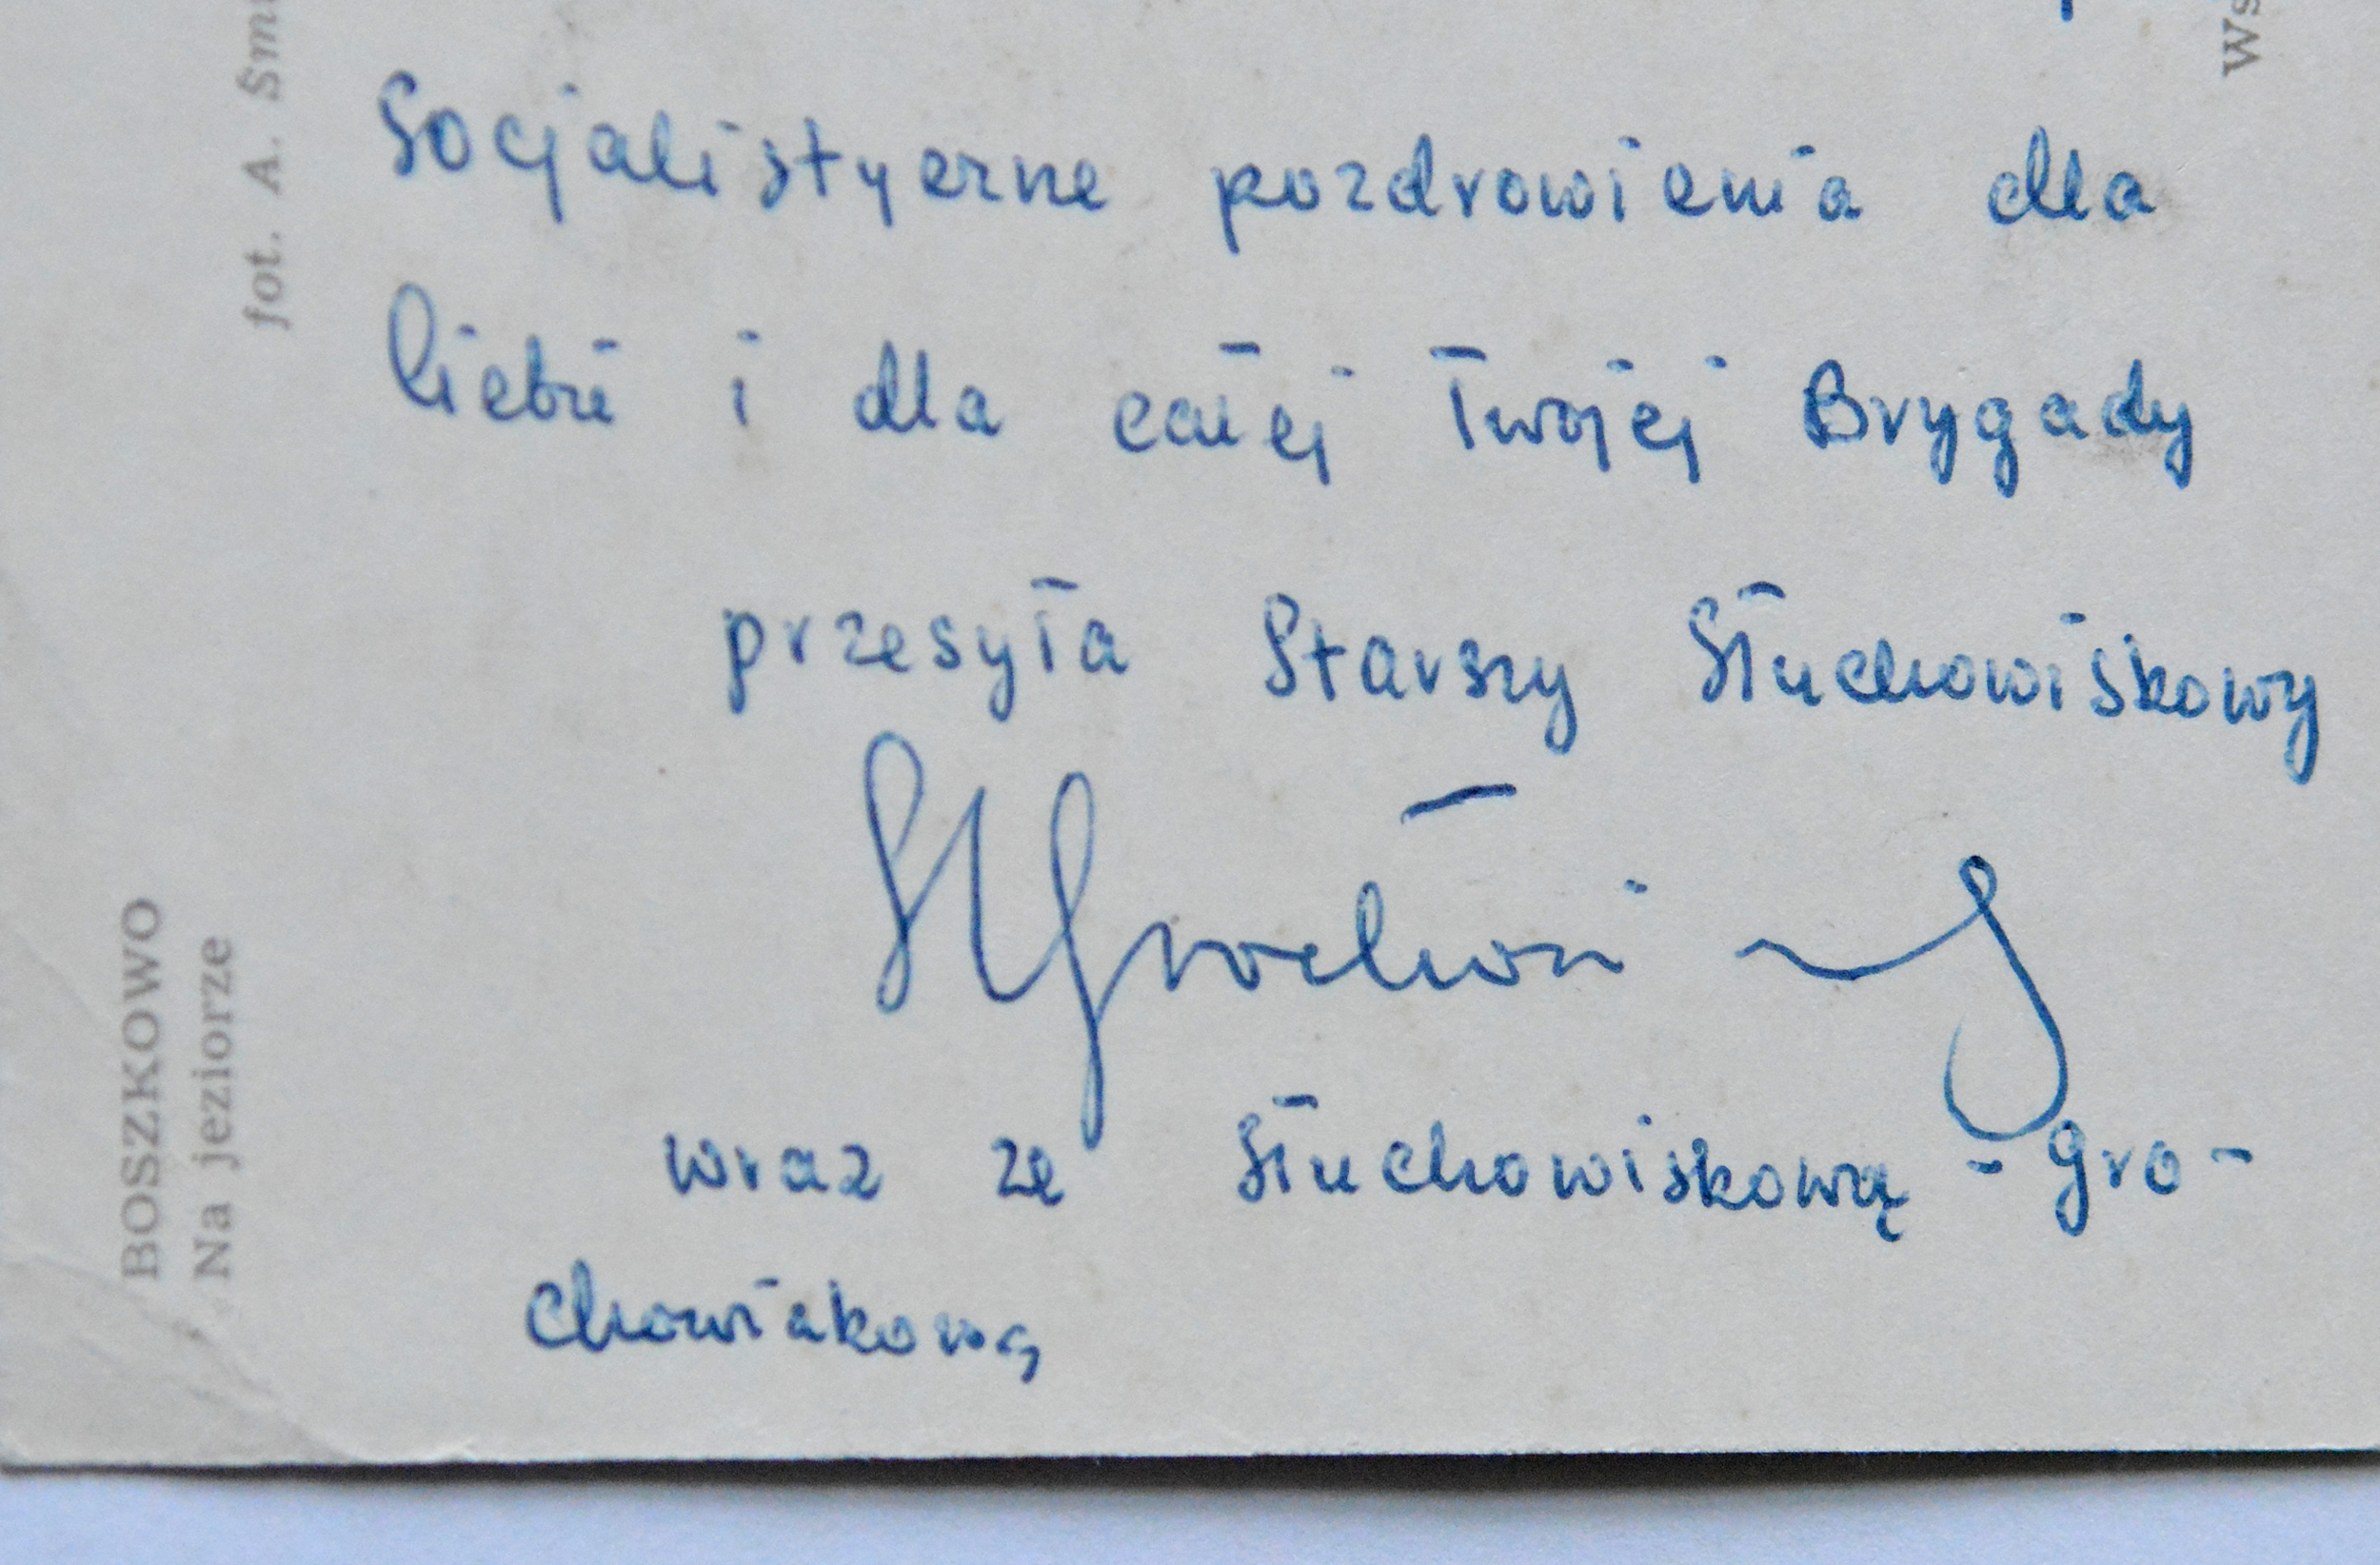 Socjalistyczne pozdrowienia dla
Ciebie i dla całej Twojej Brygady
przesyła Starszy Słuchowiskowy
StGrochowiak
wraz ze Słuchowiskową - Gro-
chowiakową
BOSZKOWO
Na jeziorze
fot. A. Śmi
Ws